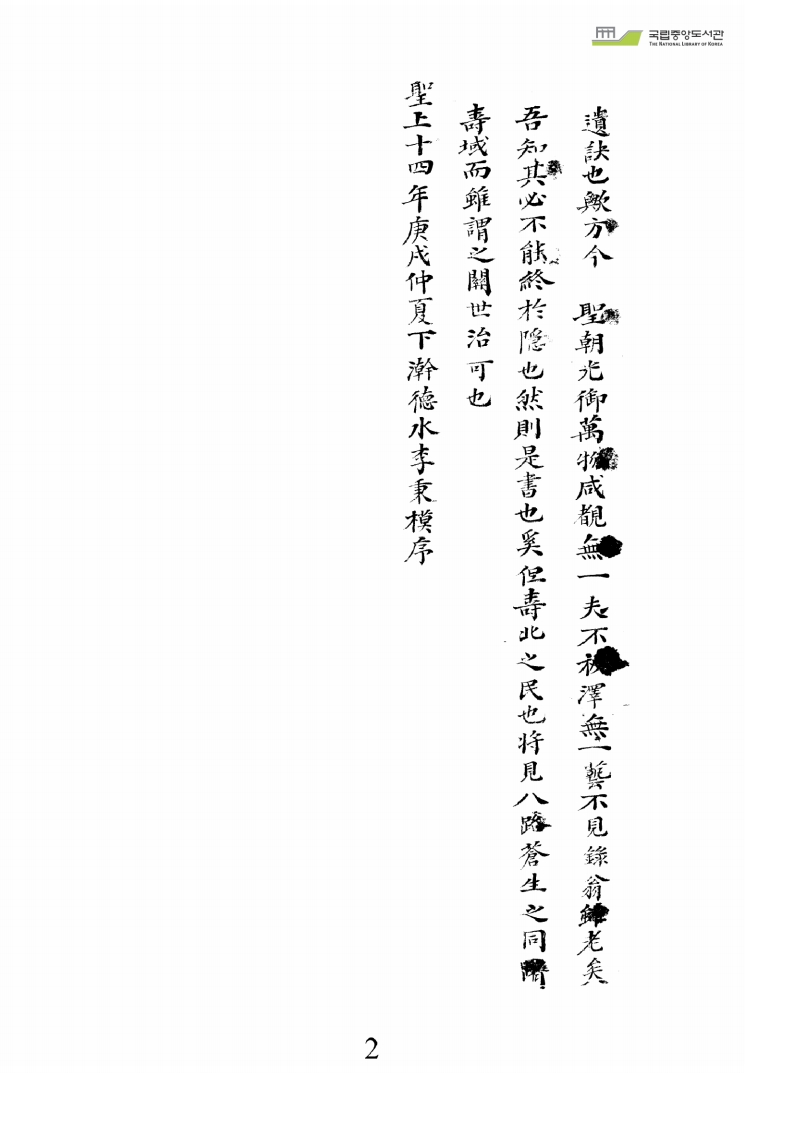 국립중앙도서관
THE NATIONAL LIBRARY OF KOREA
遺訣也歟方今 聖朝光御萬物咸覩無一夫不被澤無一藝不見錄翁雖老矣
吾知其必不能終於隱也然則是書也奚但壽北之民也將見八路蒼生之同躋
壽域而雖謂之關世治可也
聖上十四年庚戌仲夏下澣德水李秉模序
2